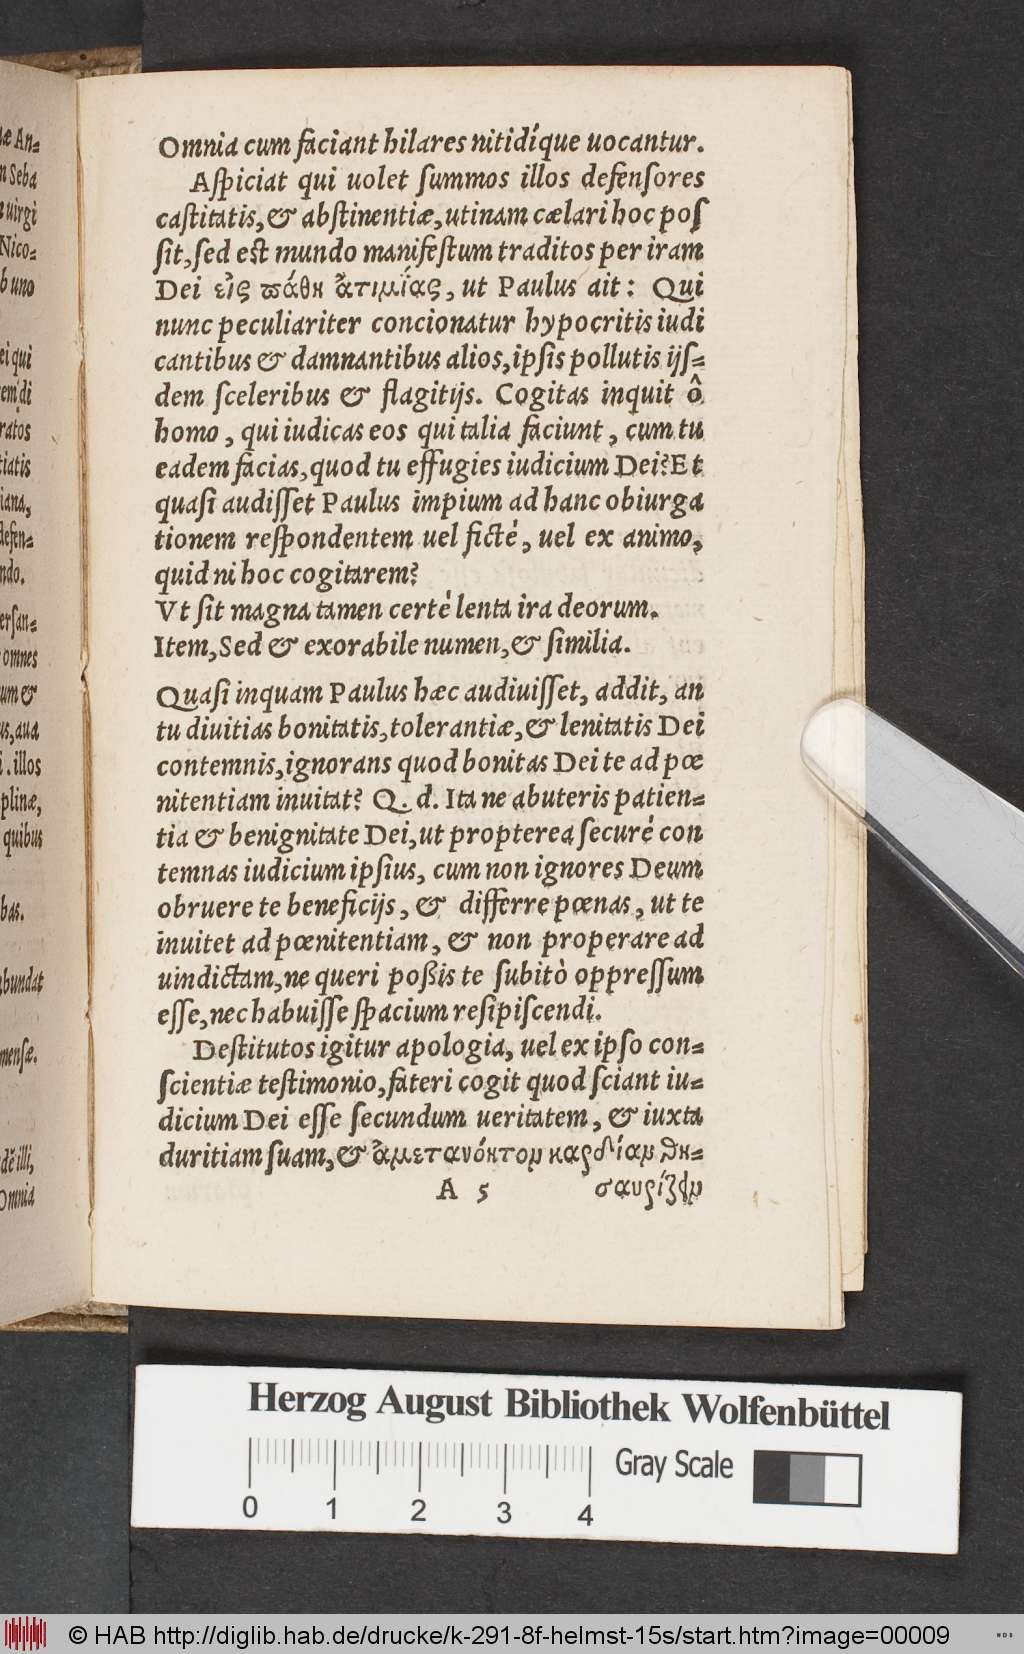 Omnia cum faciant hilares nitidíque uocantur.
Aſpiciat qui uolet ſummos illos defenſores
caſtitatis,& abſtinentiæ,utinam cælari hoc poſ
ſit,ſed eſt mundo manifeſtum traditos per iram
Dei εἰς πάθη ἀτιμίας, ut Paulus ait: Qui
nunc peculiariter concionatur hypocritis iudi
cantibus & damnantibus alios,ipſis pollutis ijſ=
dem ſceleribus & flagitijs. Cogitas inquit ô
homo, qui iudicas eos qui talia faciunt, cum tu
eadem facias,quod tu effugies iudicium Dei? Et
quaſi audiſſet Paulus impium ad hanc obiurga
tionem reſpondentem uel ficté, uel ex animo,
quid ni hoc cogitarem?
Vt ſit magna tamen certé lenta ira deorum.
Item,Sed & exorabile numen,& ſimilia.
Quaſi inquam Paulus hæc audiuiſſet, addit, an
tu diuitias bonitatis,tolerantiæ,& lenitatis Dei
contemnis,ignorans quod bonitas Dei te ad pœ
nitentiam inuitat? Q. d. Ita ne abuteris patien=
tia & benignitate Dei,ut propterea securé con
temnas iudicium ipſius, cum non ignores Deum
obruere te beneficijs, & differre pœnas, ut te
inuitet ad pœnitentiam, & non properare ad
uindictam,ne queri poßis te ſubitò oppreſſum
eſſe,nec habuiſſe ſpacium reſipiſcendi.
Deſtitutos igitur apologia, uel ex ipſo con=
ſcientiæ teſtimonio,fateri cogit quod ſciant iu=
dicium Dei eſſe ſecundum ueritatem, & iuxta
duritiam ſuam,& ἀμετανόητον καρδίαν θη=
A 5 σαυρίζειν
Herzog August Bibliothek Wolfenbüttel
Gray Scale
0 1 2 3 4
© HAB http://diglib.hab.de/drucke/k-291-8f-helmst-15s/start.htm?image=00009